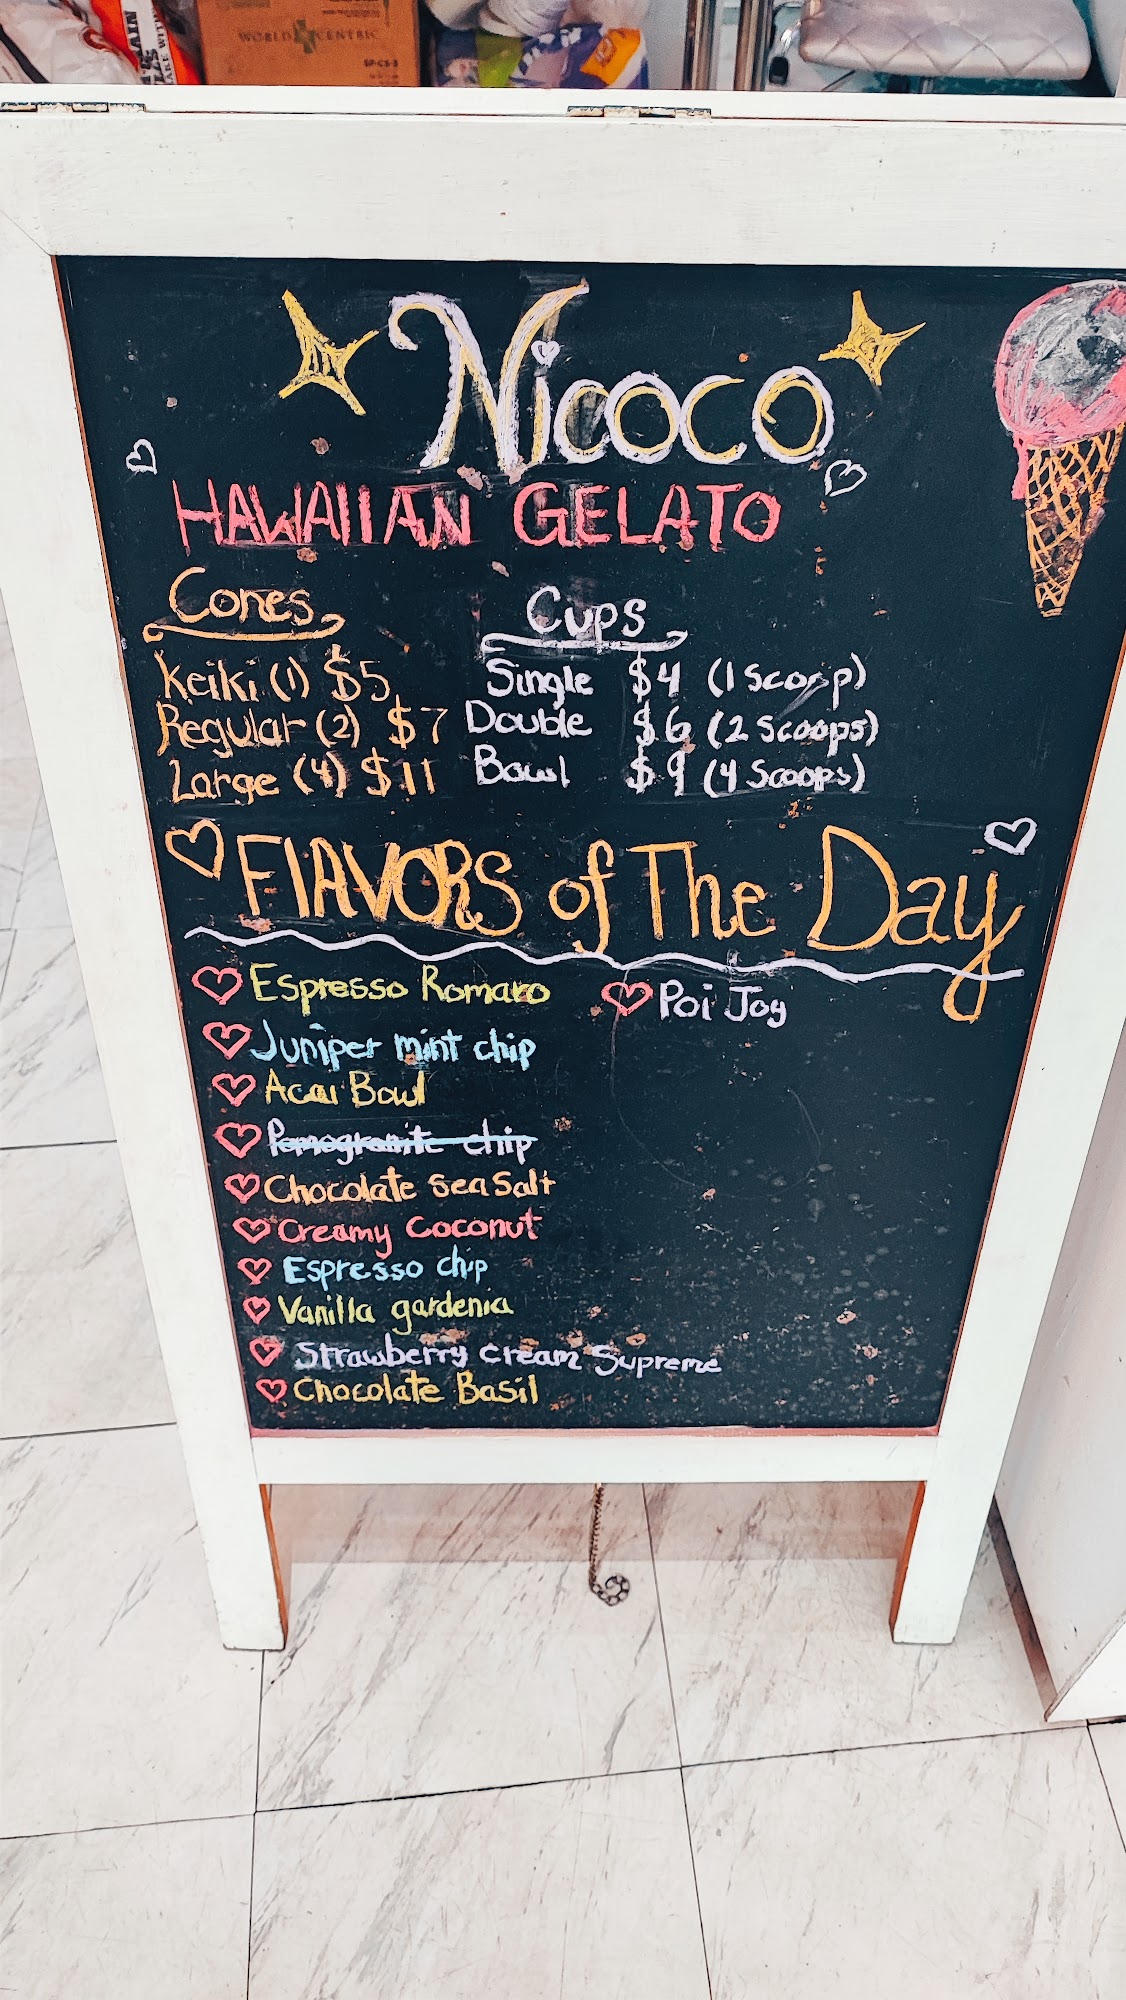 WORLD CENTRIC
Nicoco
HAWAIIAN GELATO
Cones
Keiki (1) $5
Regular (2) $7
Large (4) $11
Cups
Single $4 (1 Scoop)
Double $6 (2 Scoops)
Bowl $9 (4 Scoops)
FlAVORS of The Day
Espresso Romaro
Juniper mint chip
Acai Bowl
Pomogranite chip
Chocolate Sea Salt
Creamy Coconut
Espresso chip
Vanilla gardenia
Strawberry Cream Supreme
Chocolate Basil
Poi Joy